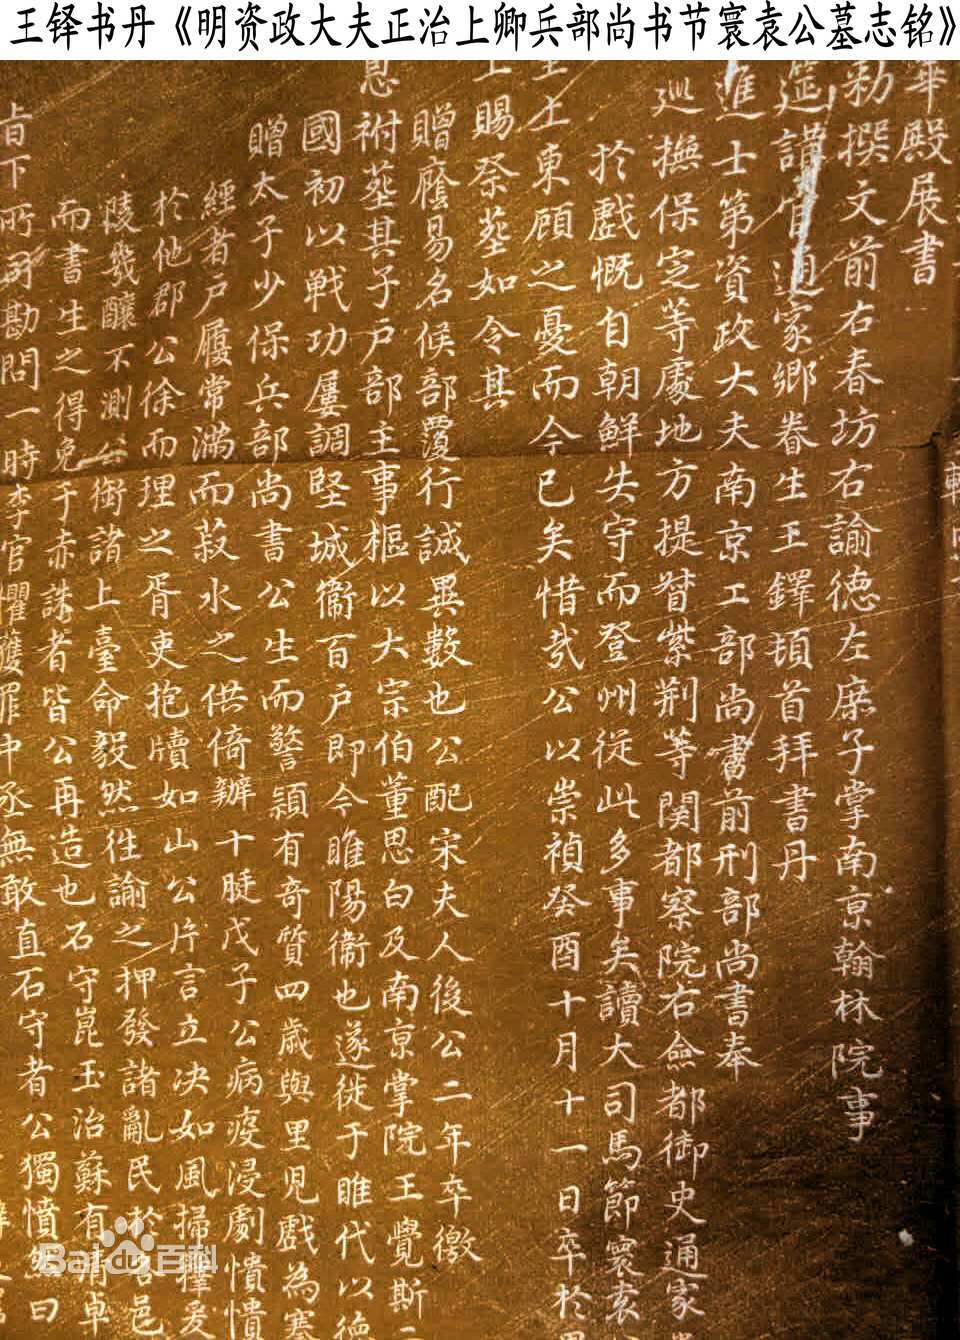 王铎书丹《明资政大夫正治上卿兵部尚书节寰袁公墓志铭》
華殿展書
勅撰文前右春坊右諭德左庶子掌南京翰林院事
筵講官通家鄉眷生王鐸頓首拜書丹
進士第資政大夫南京工部尚書前刑部尚書奉
巡撫保定等處地方提督紫荆等関都察院右僉都御史通家
於戲慨自朝鮮失守而登州從此多事矣讀大司馬節寰袁
主上東顧之憂而今已矣惜哉公以崇禎癸酉十月十一日卒於
上賜祭塟如令其
贈廕易名候部覆行誠異數也公配宋夫人後公二年卒徼
息祔塟其子戶部主事樞以大宗伯董思白及南京掌院王覺斯二
國初以戦功屢調堅城衞百戶即今睢陽衞也遂徙于睢代以德
贈太子少保兵部尚書公生而警頴有奇質四歲與里児戲為塞
經者戶履常滿而菽水之供倚辦十脡戊子公病疫浸劇憒憒
於他郡公徐而理之胥吏抱牘如山公片言立决如風掃籜爰
陵幾釀不測公銜諸上臺命毅然徃諭之押發諸亂民於各邑
而書生之得免于赤誅者皆公再造也石守崑玉治蘇有清卓
旨下所司勘問一時李官懼獲罪中丞無敢直石守者公獨憤然曰
Baidu百科